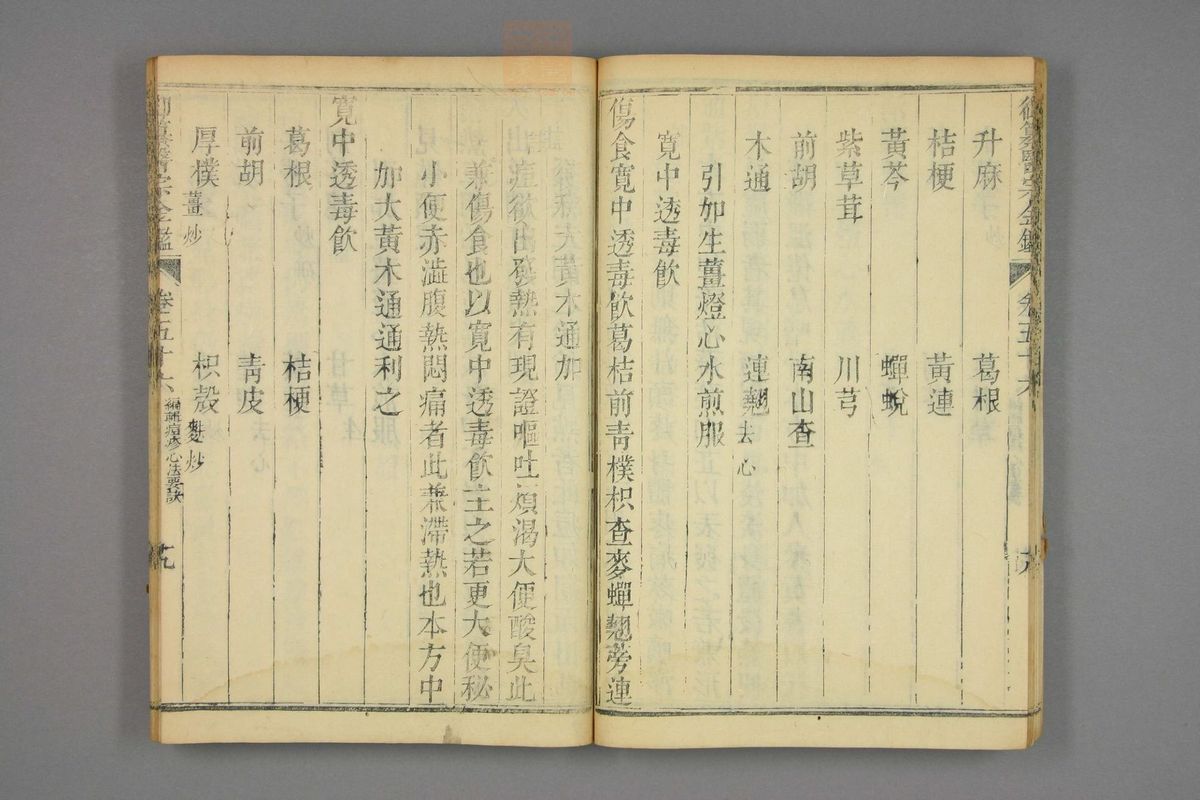 升麻 葛根
桔梗 黃連
黃芩 蟬蛻
紫草茸 川芎
前胡 南山查
木通 連翹去心
引加生薑燈心水煎服
寛中透毒飲
傷食寛中透毒飲葛桔前青樸枳查麥蟬翹蒡連
荊
加大黃木通加
出痘欲出發熱有現證嘔吐煩渴大便酸臭此
兼傷食也以寛中透毒飲主之若更大便秘
小便赤澁腹熱悶痛者此兼滯熱也本方中
加大黃木通通利之
寛中透毒飲
葛根 桔梗
前胡 青皮
厚樸薑炒 枳殼麩炒
御纂醫宗金鑑 卷五十六 編輯痘疹心法要訣